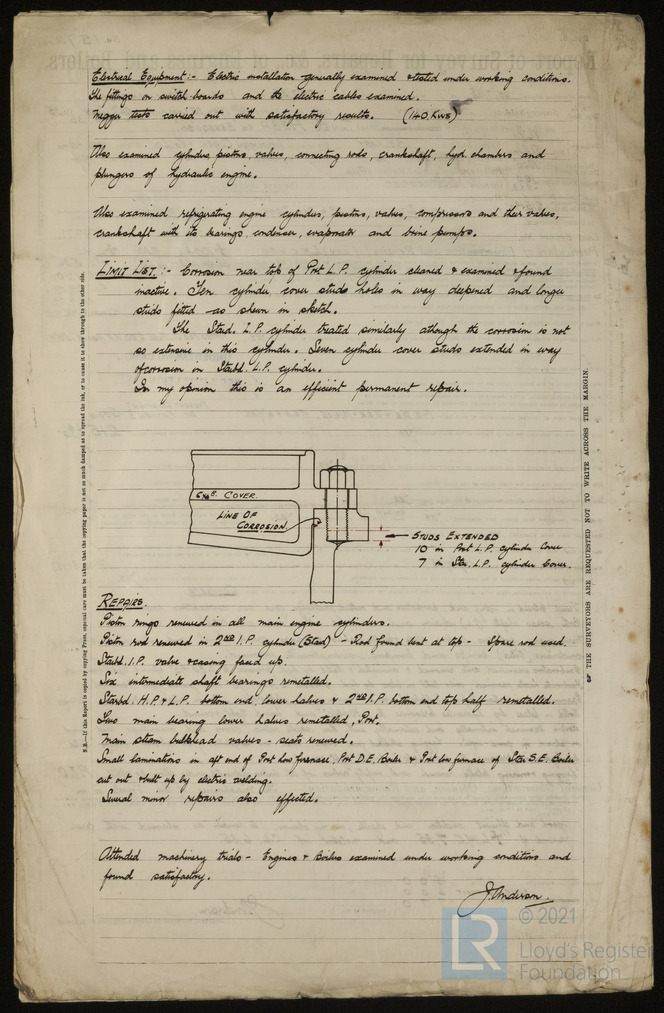 Electrical Equipment:- Electric installation generally examined & tested under working conditions.
The fittings on switch boards and the electric cables examined.
Megger tests carried out with satisfactory results. (140 KWS)
Also examined cylinders, pistons, valves, connecting rods, crankshaft, hyd. chambers and
plungers of hydraulic engine.
Also examined refrigerating engine cylinders, pistons, valves, compressors and their valves,
crankshaft with its bearings, condenser, evaporator and brine pumps.
LIMIT LIST:- Corrosion near top of Port L.P. cylinder cleaned & examined & found
inactive. Ten cylinder cover studs holes in way deepened and longer
studs fitted as shown in sketch.
The Starbd. L.P cylinder treated similarly although the corrosion is not
so extensive in this cylinder. Seven cylinder cover studs extended in way
of corrosion in Starbd. L.P. cylinder.
In my opinion this is an efficient permanent repair.
COVER.
LINE OF
CORROSION.
STUDS EXTENDED
10 in Port L.P. cylinder Cover
7 in Star. L.P. cylinder Cover.
REPAIRS.
Piston rings renewed in all main engine cylinders.
Piston rod renewed in 2ND I.P. cylinder (Starbd) - Rod found bent at top - Spare rod used.
Starbd. I.P. valve & casing faced up.
Six intermediate shaft bearings remetalled.
Starbd. H.P. & L.P. bottom end, lower halves & 2ND I.P. bottom end top half remetalled.
Two main bearing lower halves remetalled, Port.
Main steam bulkhead valves - seats renewed.
Small laminations in aft end of Port low furnace, Port D.E. Boiler & Port low furnace of Star S.E. Boiler
cut out & built up by electric welding.
Several minor repairs also effected.
Attended machinery trials - Engines & Boilers examined under working conditions and
found satisfactory.
J. Anderson.
N.B.—If this Report is copied by copying Press, especial care must be taken that the copying paper is not so much damped as to spread the ink, or to cause it to show through to the other side.
THE SURVEYORS ARE REQUESTED NOT TO WRITE ACROSS THE MARGIN.
LR
© 2021
Lloyd's Register
Foundation